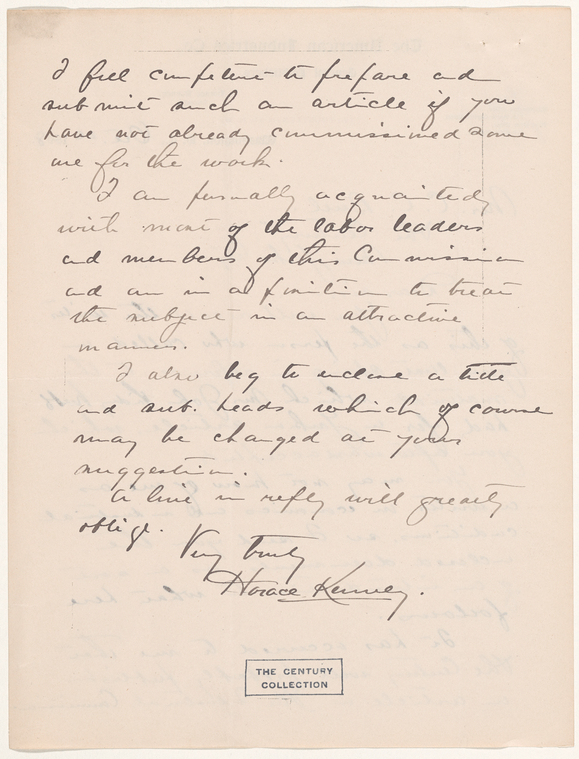 I feel competent to prepare and
submit such an article if you
have not already commissioned some
one for the work.
I am personally acquainted
with most of the labor leaders
and members of this Commission
and am in a position to treat
the subject in an attractive
manner.
I also beg to enclose a title
and sub. heads which of course
may be changed at your
suggestion.
A line in reply will greatly
oblige.
Very truly
Horace Kenney.
THE CENTURY
COLLECTION